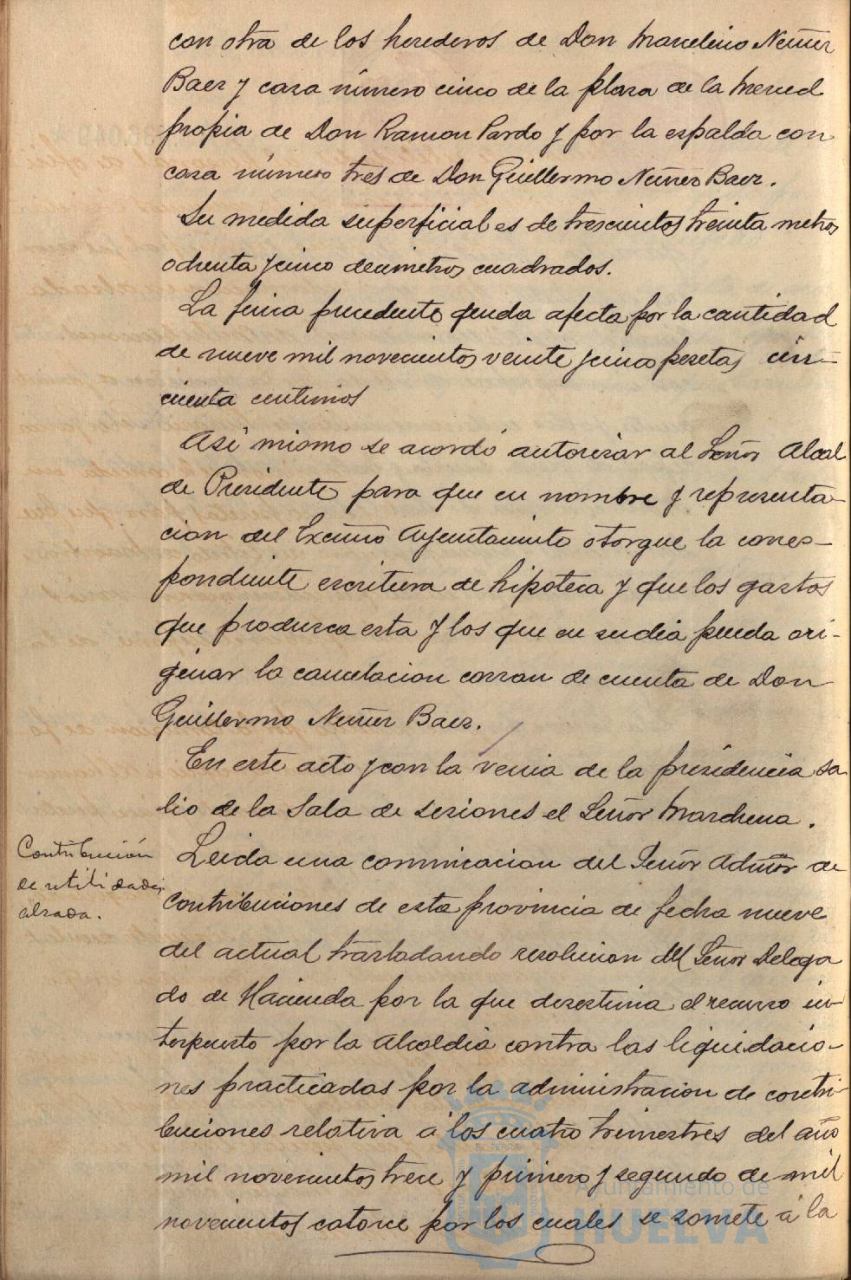 con otra de los herederos de Don Marcelino Nuñez
Baez y casa número cinco de la plaza de la Merced
propia de Don Ramon Pardo y por la espalda con
casa número tres de Don Guillermo Nuñez Baez.
Su medida superficial es de trescientos treinta metros
ochenta y cinco decimetros cuadrados.
La finca precedente queda afecta por la cantidad
de nueve mil novecientos veinte y cinco pesetas cin-
cuenta centimos
Asi mismo se acordó autorizar al Señor Alcal
de Presidente para que en nombre y representa-
cion del Excmo Ayuntamiento otorgue la corres-
pondiente escritura de hipoteca y que los gastos
que produzca esta y los que en su dia pueda ori-
ginar la cancelacion corran de cuenta de Don
Guillermo Nuñez Baez.
En este acto y con la venia de la presidencia sa
lio de la Sala de sesiones el Señor Marchena.
Contribución
de utilidades
alzada.
Leida una comunicacion del Señor Admor de
Contribuciones de esta provincia de fecha nueve
del actual trasladando resolucion del Señor Delega
do de Hacienda por la que desestima el recurso in-
terpuesto por la Alcaldia contra las liquidacio-
nes practicadas por la administracion de contri-
buciones relativa á los cuatro trimestres del año
mil novecientos trece y primero y segundo de mil
novecientos catorce por los cuales se somete á la
Ayuntamiento de
HUELVA